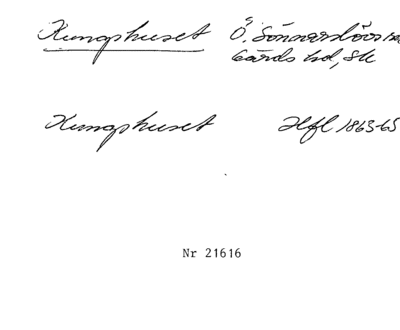 Kungshuset Ö. Sönnarslövs
Gärds hd, Sk
Kungshuset Hfl 1863-65
Nr 21616